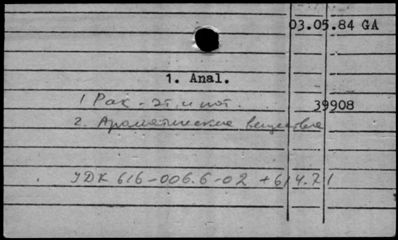 03.05.84 GA
1. Anal.
1 Рак - эт. и пот.
39908
2. Ароматические вещества
УДК 616-006.6-02 +614.71